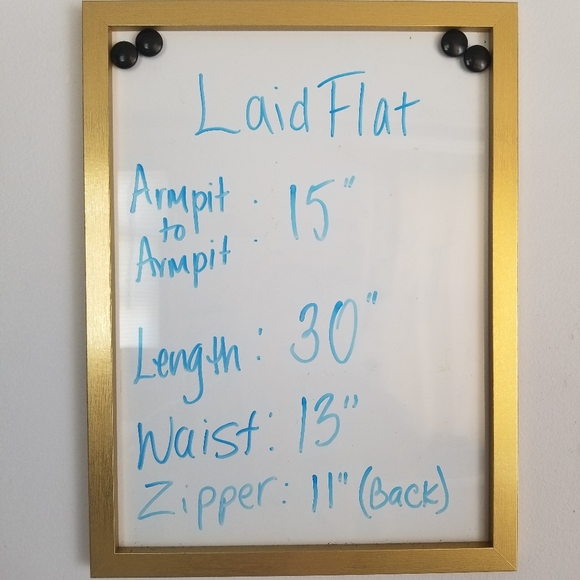 Laid Flat
Armpit
to
Armpit : 15"
Length: 30"
Waist: 13"
Zipper: 11" (Back)